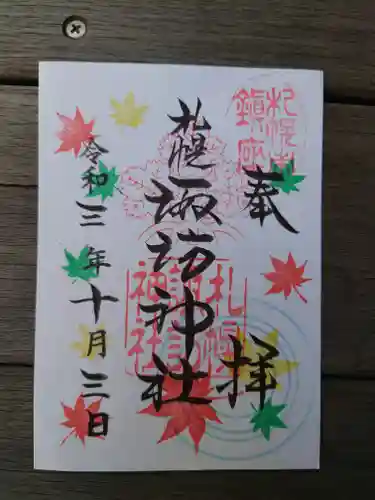 奉拝
札幌市鎮座
札幌諏訪神社
札幌諏訪神社
令和三年十月三日